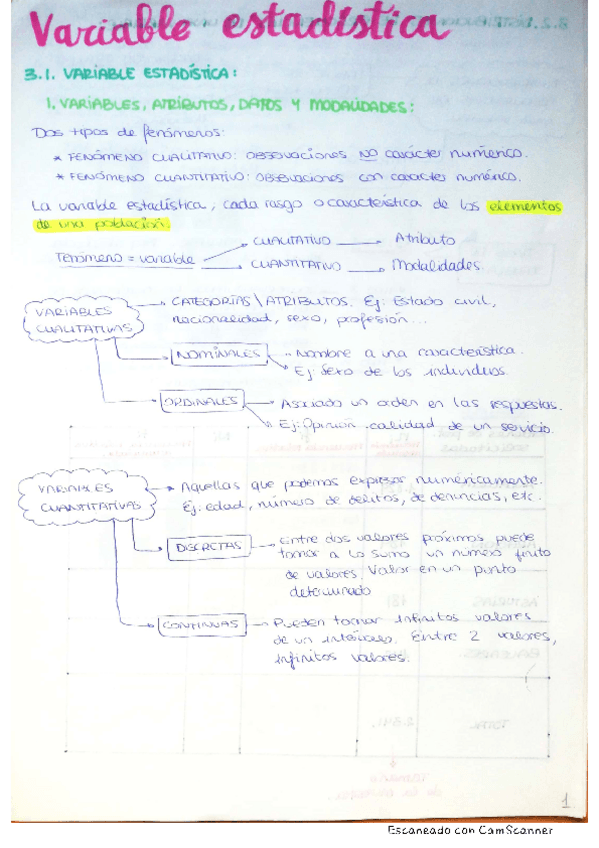 Variable estadística
3.1. VARIABLE ESTADÍSTICA:
1. VARIABLES, ATRIBUTOS, DATOS Y MODALIDADES:
Dos tipos de fenómenos:
* FENÓMENO CUALITATIVO: OBSERVACIONES NO carácter numérico.
* FENÓMENO CUANTITATIVO: OBSERVACIONES con carácter numérico.
La variable estadística, cada rasgo o característica de los elementos
de una población.
Fenómeno = variable
CUALITATIVO
Atributo
CUANTITATIVO
Modalidades
VARIABLES
CUALITATIVAS
CATEGORÍAS \ ATRIBUTOS. Ej: Estado civil,
nacionalidad, sexo, profesión...
NOMINALES
Nombre a una característica.
Ej: Sexo de los individuos
ORDINALES
Asociado un orden en las respuestas.
Ej: Opinión calidad de un servicio.
VARIABLES
CUANTITATIVAS
Aquellas que podemos expresar numéricamente.
Ej: edad, número de delitos, de denuncias, etc.
DISCRETAS
Entre dos valores próximos puede
tomar a lo sumo un número finito
de valores. Valor en un punto
determinado
CONTINUAS
Pueden tomar infinitos valores
de un intervalo. Entre 2 valores,
infinitos valores.
1
Escaneado con CamScanner